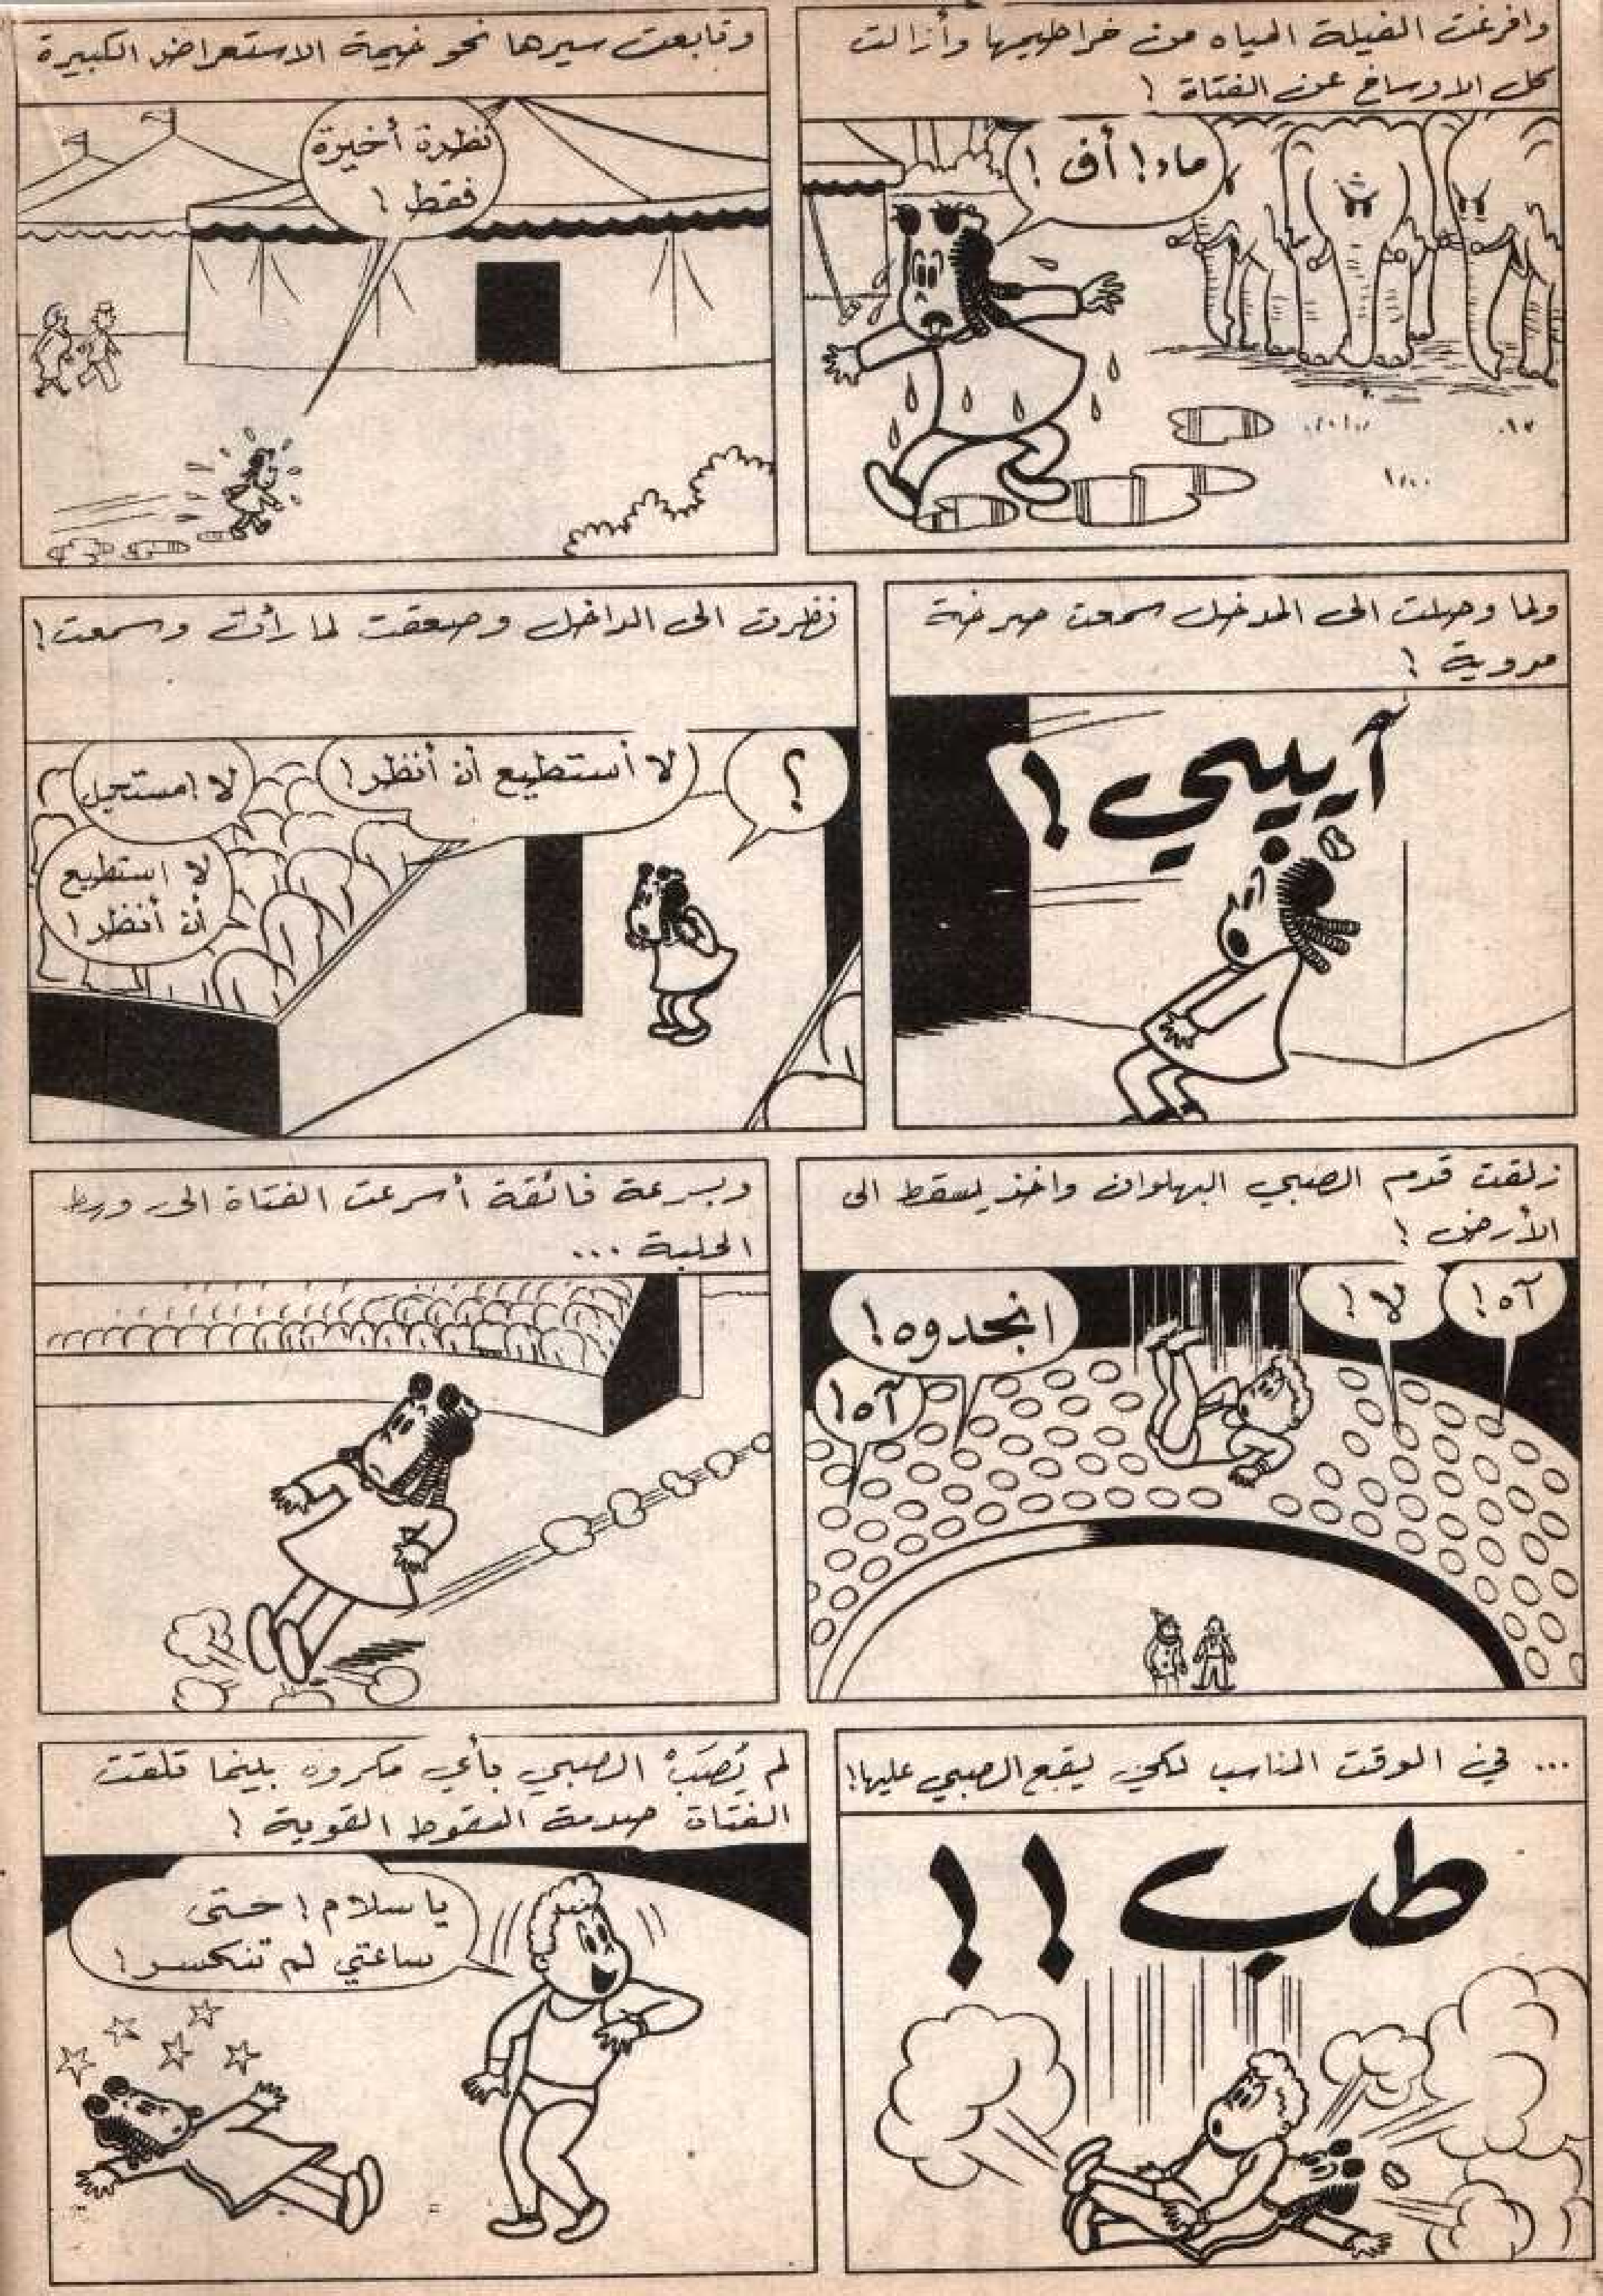 وافرغت الفيلة المياه من خراطيمها وأزالت
كل الاوساخ عن الفتاة !
ماء! أف !
وتابعت سيرها نحو خيمة الاستعراض الكبيرة
نظرة أخيرة
فقط !
ولما وصلت الى المدخل سمعت صرخة
مدوية !
آيييي !
نظرت الى الداخل وصعقت لما رأت وسمعت !
؟
لا أستطيع أن أنظر !
لا ! مستحيل
لا استطيع
أن أنظر !
زلقت قدم الصبي البهلوان واخذ يسقط الى
الأرض !
آه !
لا !
انجدوه !
آه !
وبسرعة فائقة أسرعت الفتاة الى وسط
الحلبة ...
... في الوقت المناسب لكي يقع الصبي عليها !
طب ! !
لم يُصَبْ الصبي بأي مكروه بينما تلقت
الفتاة صدمة السقوط القوية !
يا سلام ! حتى
ساعتي لم تنكسر !